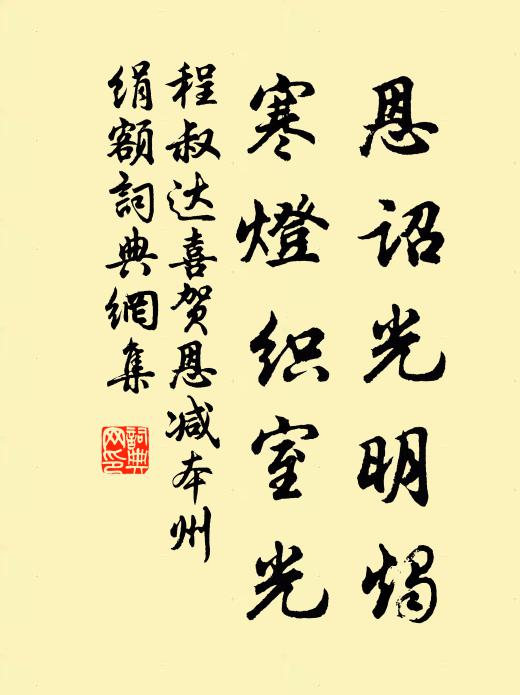 恩诏光明烛
寒燈织室光
程叔达喜贺恩减本州
绢额詞典網集
詞典网印